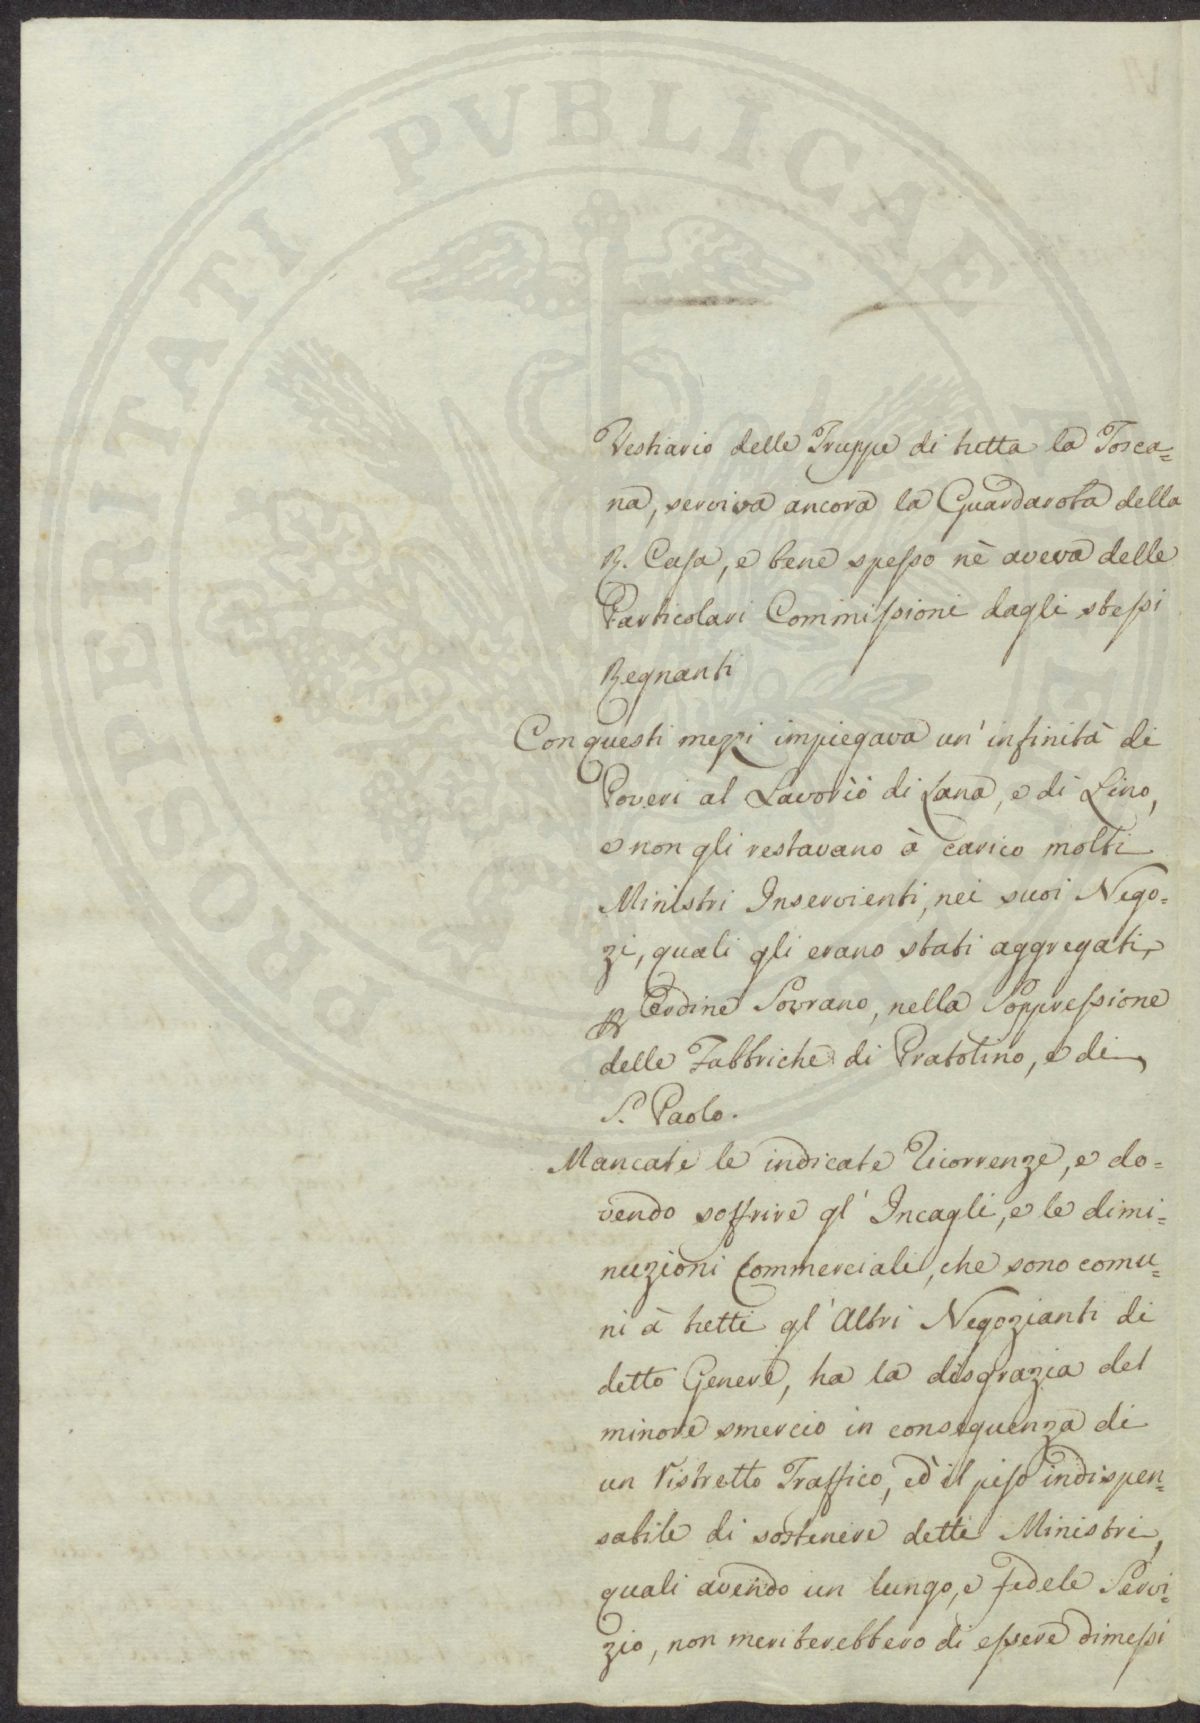 PROSPERITATI PVBLICAE
Vestiario delle Truppe di tutta la Tosca=
na, serviva ancora la Guardaroba della
R. Casa, e bene spesso nè aveva delle
Particolari Commissioni dagli stessi
Regnanti
Con questi mezzi impiegava un' infinità di
Poveri al Lavorìo di Lana, e di Lino,
e non gli restavano à carico molti
Ministri Inservienti, nei suoi Nego=
zi, quali gli erano stati aggregati,
Ordine Sovrano, nella Soppressione
delle Fabbriche di Pratolino, e di
S. Paolo.
Mancate le indicate Ricorrenze, e do=
vendo soffrire gl' Incagli, e le dimi=
nuzioni Commerciali, che sono comu=
ni à tutti gl' Altri Negozianti di
detto Genere, ha la disgrazia del
minore smercio in conseguenza di
un ristretto Traffico, ed il peso indispen=
sabile di sostenere detti Ministri,
quali avendo un lungo, e fedele Servi=
zio, non meriterebbero di essere dimessi